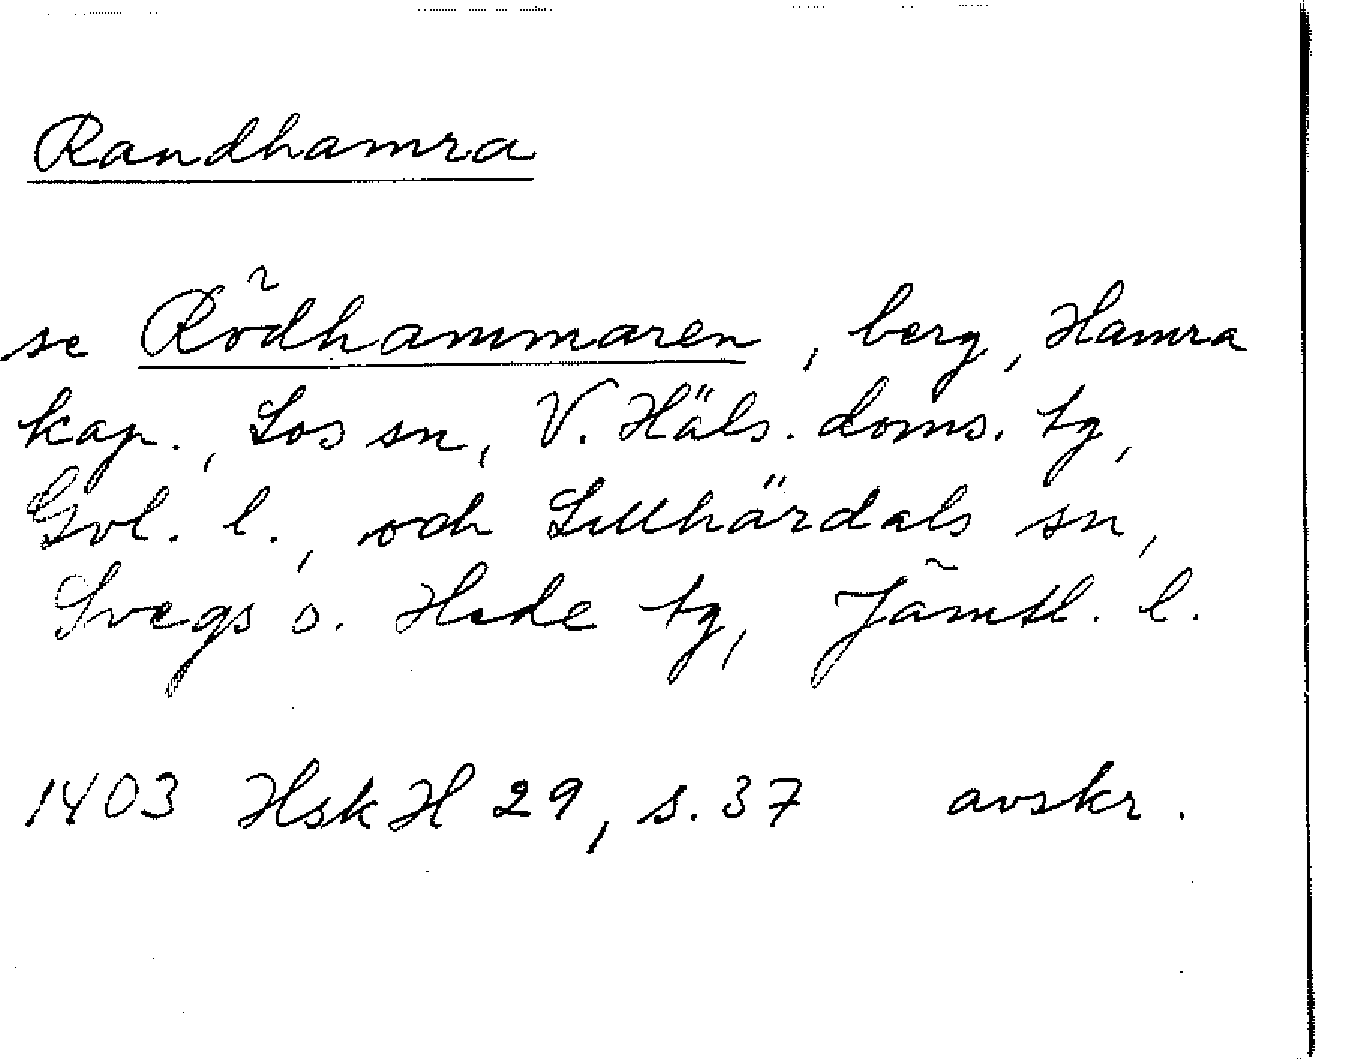 Randhamra
se Rödhammaren, berg, Hamra
kap., Los sn, V. Häls. doms. tg,
Gvl. l., och Lillhärdals sn,
Svegs o. Hede tg, Jämtl. l.
1403 Hsk H 29, s. 37 avskr.